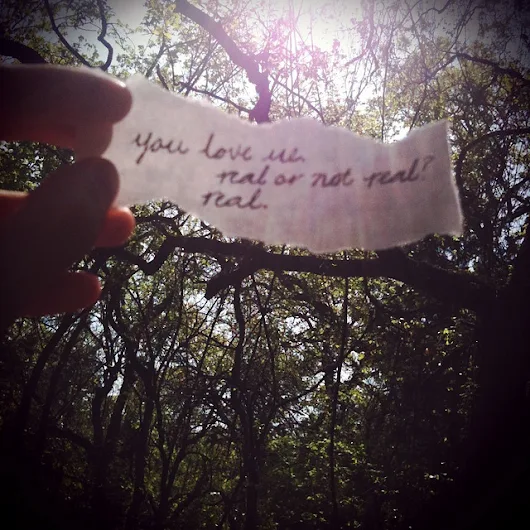 you love me.
real or not real?
real.